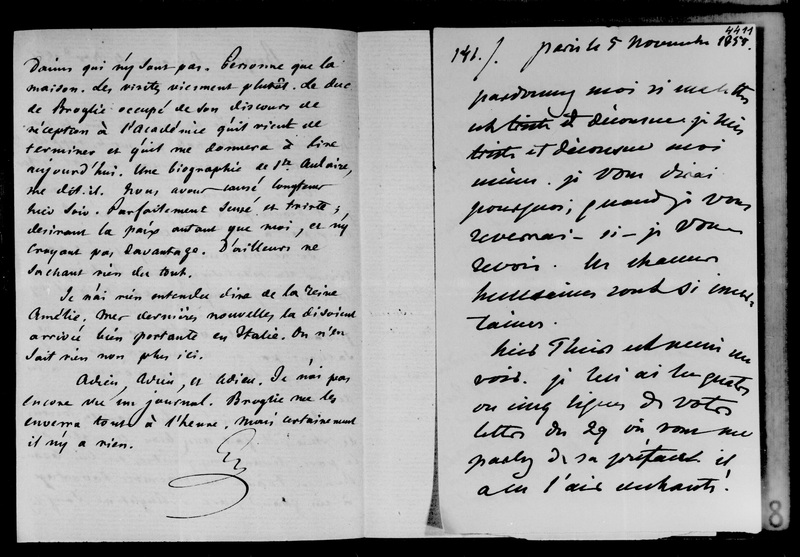 Dains qui n'y sont pas. Personne que la
maison. Les visites viennent plutôt. Le duc
de Broglie occupé de son discours de
réception à l'Académie qu'il vient de
terminer et qu'il me donnera à lire
aujourd'hui. Une biographie de Ste Aulaire,
me dit-il. Nous avons causé longtems
hier soir. Parfaitement sensé et triste ;
desirant la paix autant que moi, et n'y
croyant pas davantage. D'ailleurs ne
sachant rien du tout.
Je n'ai rien entendu dire de la Reine
Amélie. Mes dernières nouvelles la disoient
arrivée bien portante en Italie. On n'en
sait rien non plus ici.
Adieu, Adieu, et Adieu. Je n'ai pas
encore vu un journal. Broglie me les
enverra tout à l'heure. Mais certainement
il n'y a rien.
4411
141./. paris le 5 Novembre 185
pardonnez moi si ma lettre
est triste et décousue je suis
triste et décousue moi
même. je vous dirai
pourquoi, quand je vous
reverrai - si - je vous
revois. les choses
humaines sont si incer-
taines.
hier Thiers est venu me
voir. je lui ai lu quatre
ou cinq lignes de votre
lettre du 29 où vous me
parlez de sa préface il
a eu l'air enchanté !
8